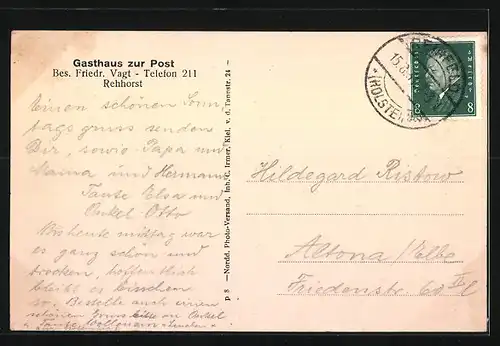 Gasthaus zur Post
Bes. Friedr. Vagt - Telefon 211
Rehhorst
Einen schönen Sonn,
tagsgruss senden
Dir, sowie Papa und
Mama und Hermann
Tante Elsa und
Onkel Otto
Bis heute mittag war
es ganz schön und
trocken, hoffentlich
bleibt es bischen
so. Bestelle auch einen
schönen Gruss bitte an Onkel
p 8 — Nordd. Photo-Versand, Inh. C. Irmer, Kiel, v. d. Tannstr. 24 —
(HOLSTEIN)
8 8
Hildegard Ristow
Altona/Elbe
Friedenstr. 60